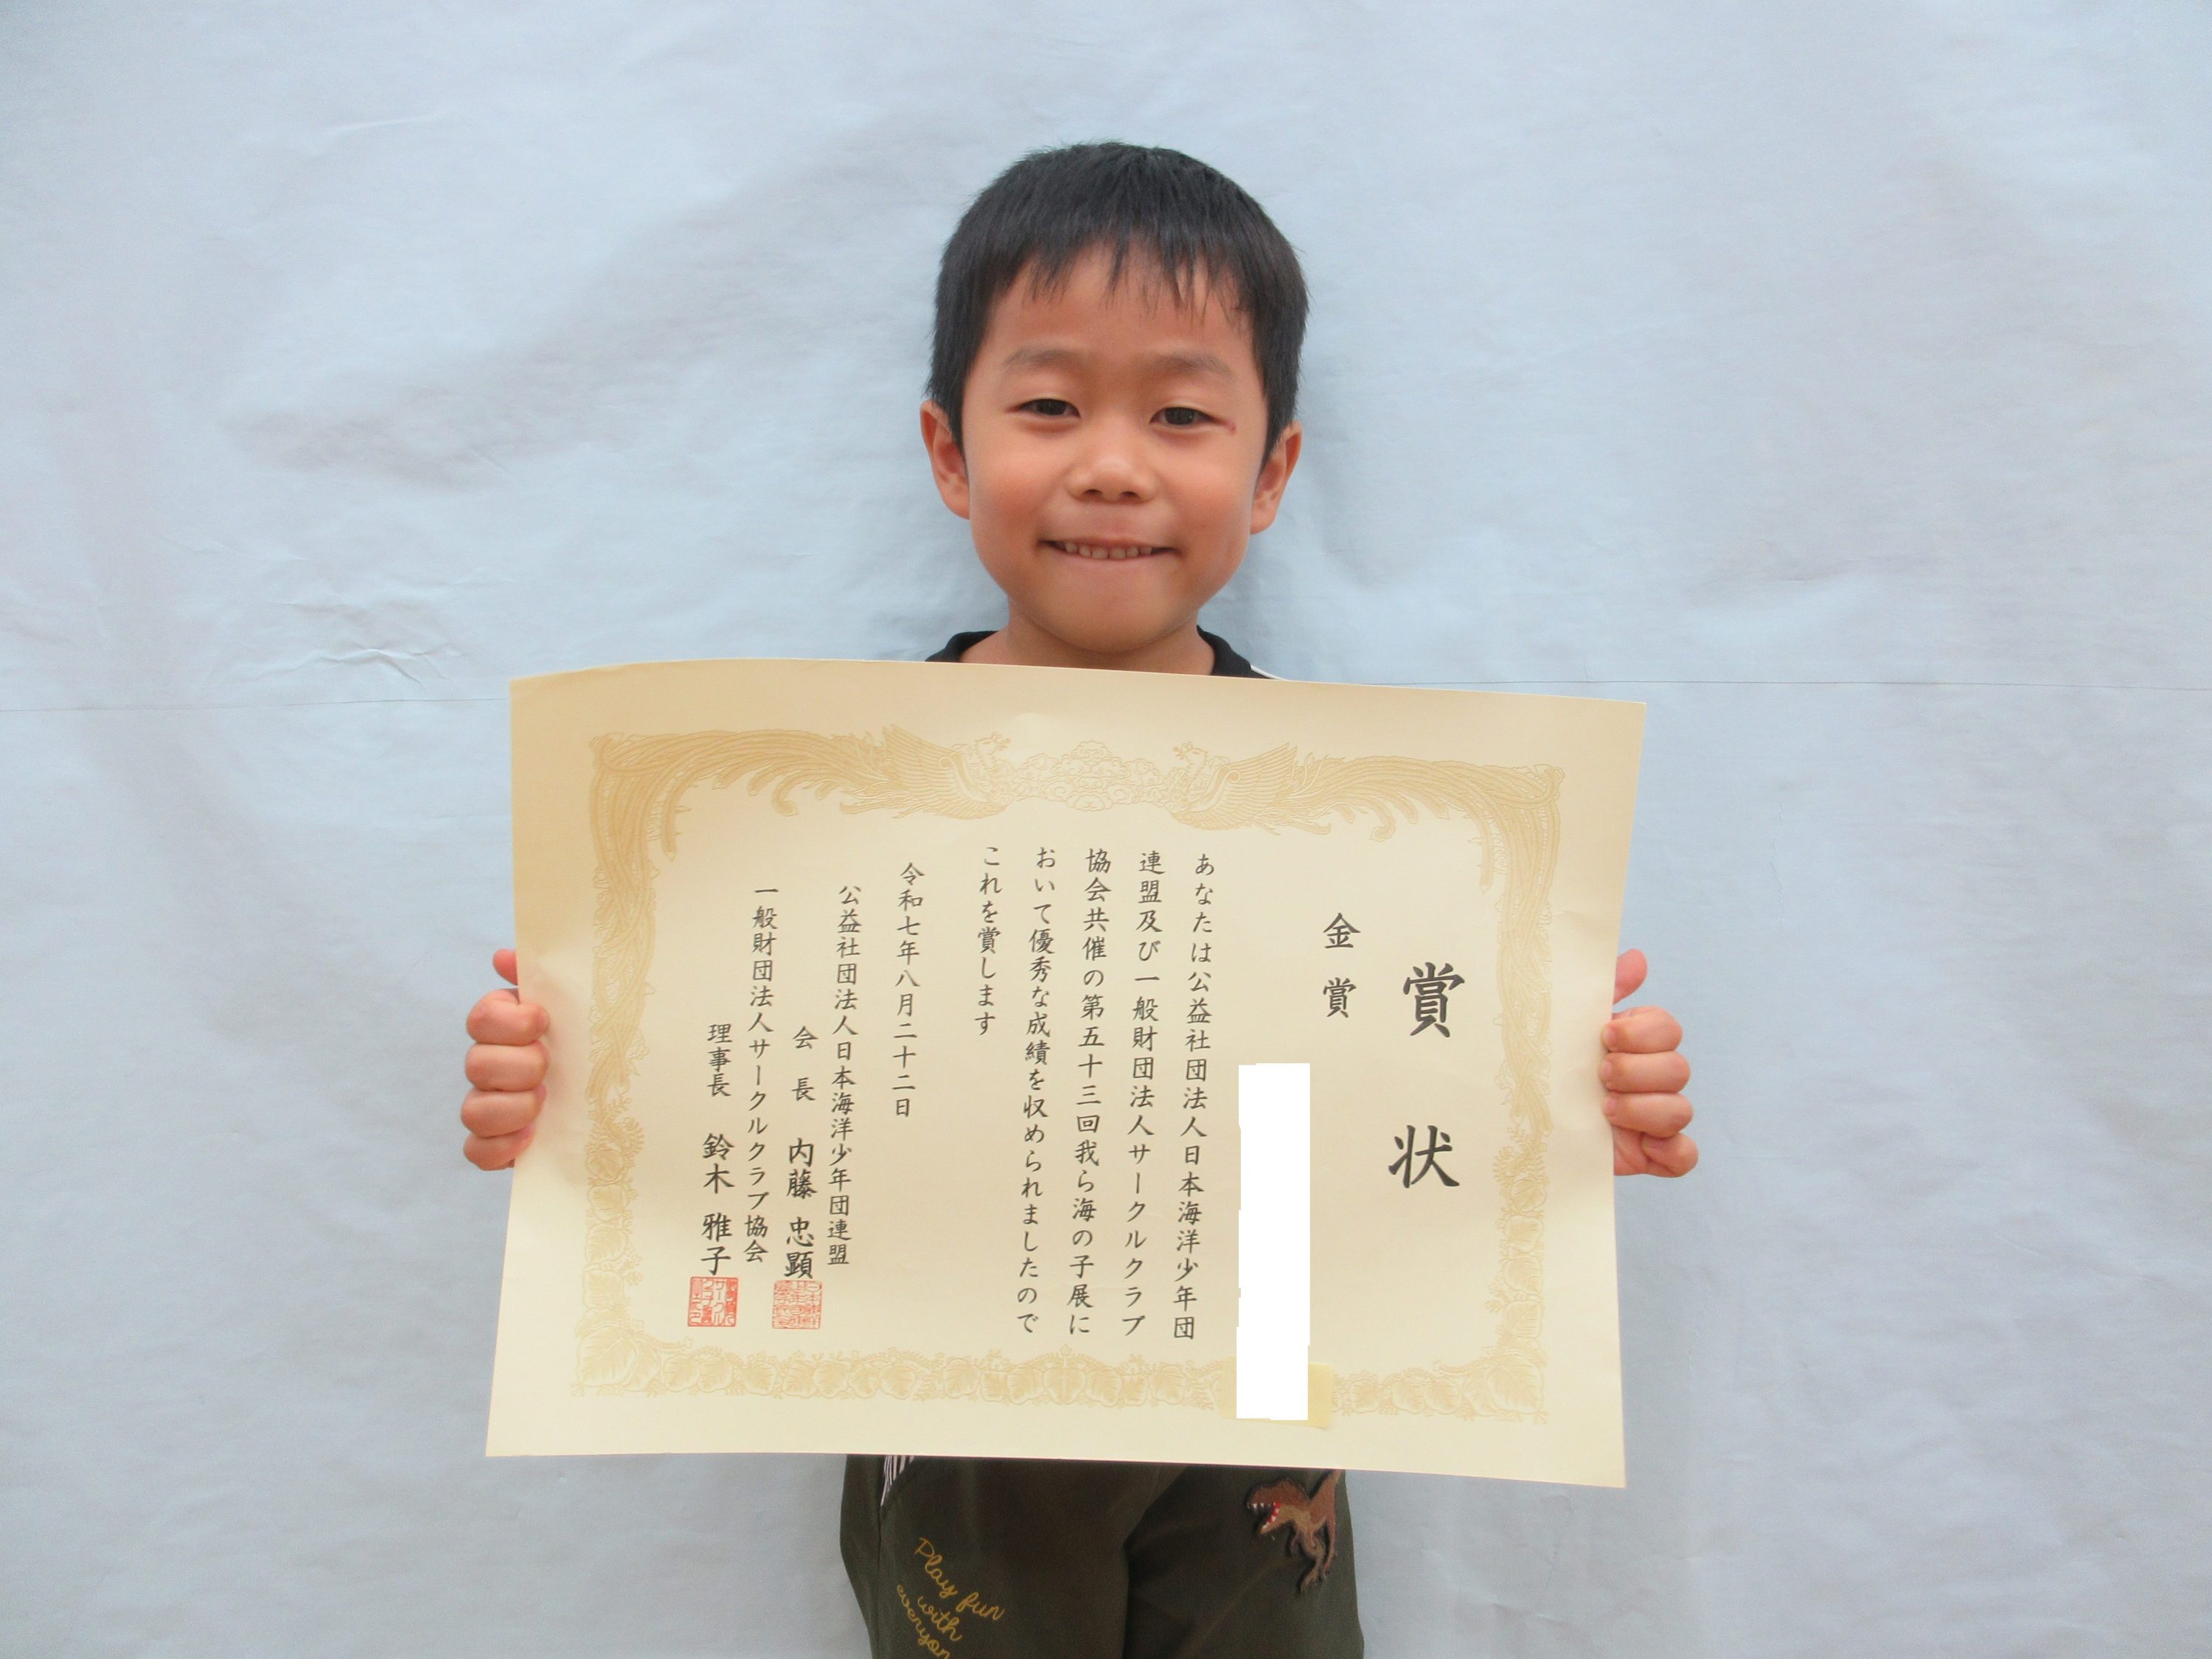 賞状
金賞
あなたは公益社団法人日本海洋少年団
連盟及び一般財団法人サークルクラブ
協会共催の第五十三回我ら海の子展に
おいて優秀な成績を収められましたので
これを賞します
令和七年八月二十二日
公益社団法人日本海洋少年団連盟
会長 内藤忠顕
一般財団法人サークルクラブ協会
理事長 鈴木雅子
Play fun
with
everyon